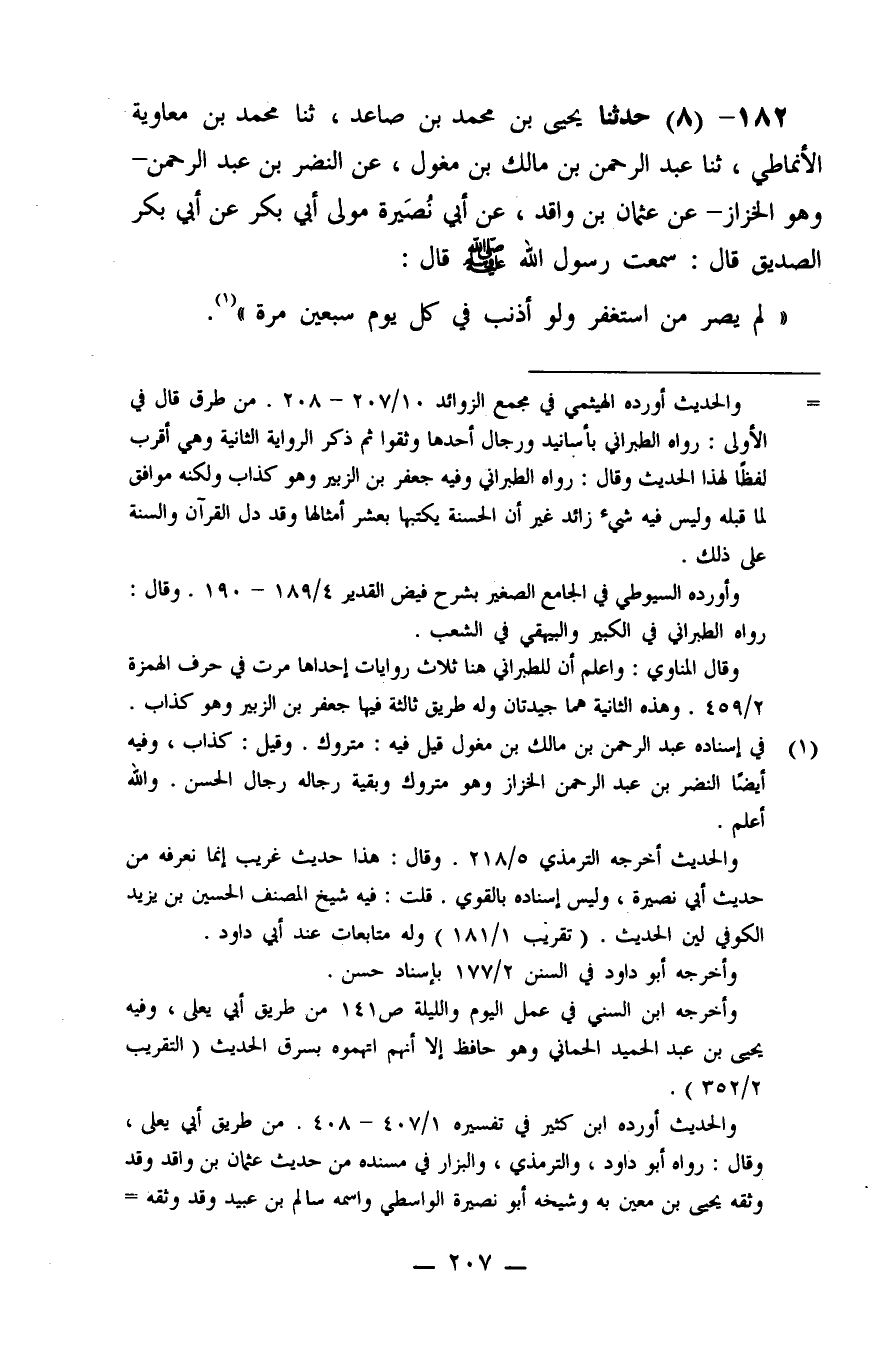 ١٨٢- (٨) حدثنا يحيى بن محمد بن صاعد ، ثنا محمد بن معاوية
الأنماطي ، ثنا عبد الرحمن بن مالك بن مغول ، عن النضر بن عبد الرحمن-
وهو الخزاز- عن عثمان بن واقد ، عن أبي نُصَيرة مولى أبي بكر عن أبي بكر
الصديق قال : سمعت رسول الله ﷺ قال :
« لم يصر من استغفر ولو أذنب في كل يوم سبعين مرة »(١).
= والحديث أورده الهيثمي في مجمع الزوائد ٢٠٧/١٠ – ٢٠٨ . من طرق قال في
الأولى : رواه الطبراني بأسانيد ورجال أحدها وثقوا ثم ذكر الرواية الثانية وهي أقرب
لفظًا لهذا الحديث وقال : رواه الطبراني وفيه جعفر بن الزبير وهو كذاب ولكنه موافق
لما قبله وليس فيه شيء زائد غير أن الحسنة يكتبها بعشر أمثالها وقد دل القرآن والسنة
على ذلك .
وأورده السيوطي في الجامع الصغير بشرح فيض القدير ١٨٩/٤ – ١٩٠ . وقال :
رواه الطبراني في الكبير والبيهقي في الشعب .
وقال المناوي : واعلم أن للطبراني هنا ثلاث روايات إحداها مرت في حرف الهمزة
٤٥٩/٢ . وهذه الثانية هما جيدتان وله طريق ثالثة فيها جعفر بن الزبير وهو كذاب .
(١) في إسناده عبد الرحمن بن مالك بن مغول قيل فيه : متروك . وقيل : كذاب ، وفيه
أيضًا النضر بن عبد الرحمن الخزاز وهو متروك وبقية رجاله رجال الحسن . والله
أعلم .
والحديث أخرجه الترمذي ٢١٨/٥ . وقال : هذا حديث غريب إنما نعرفه من
حديث أبي نصيرة ، وليس إسناده بالقوي . قلت : فيه شيخ المصنف الحسين بن يزيد
الكوفي لين الحديث . ( تقريب ١٨١/١ ) وله متابعات عند أبي داود .
وأخرجه أبو داود في السنن ١٧٧/٢ بإسناد حسن .
وأخرجه ابن السني في عمل اليوم والليلة ص١٤١ من طريق أبي يعلى ، وفيه
يحيى بن عبد الحميد الحماني وهو حافظ إلا أنهم اتهموه بسرق الحديث ( التقريب
٣٥٢/٢ ) .
والحديث أورده ابن كثير في تفسيره ٤٠٧/١ – ٤٠٨ . من طريق أبي يعلى ،
وقال : رواه أبو داود ، والترمذي ، والبزار في مسنده من حديث عثمان بن واقد وقد
وثقه يحيى بن معين به وشيخه أبو نصيرة الواسطي واسمه سالم بن عبيد وقد وثقه =
— ٢٠٧ —